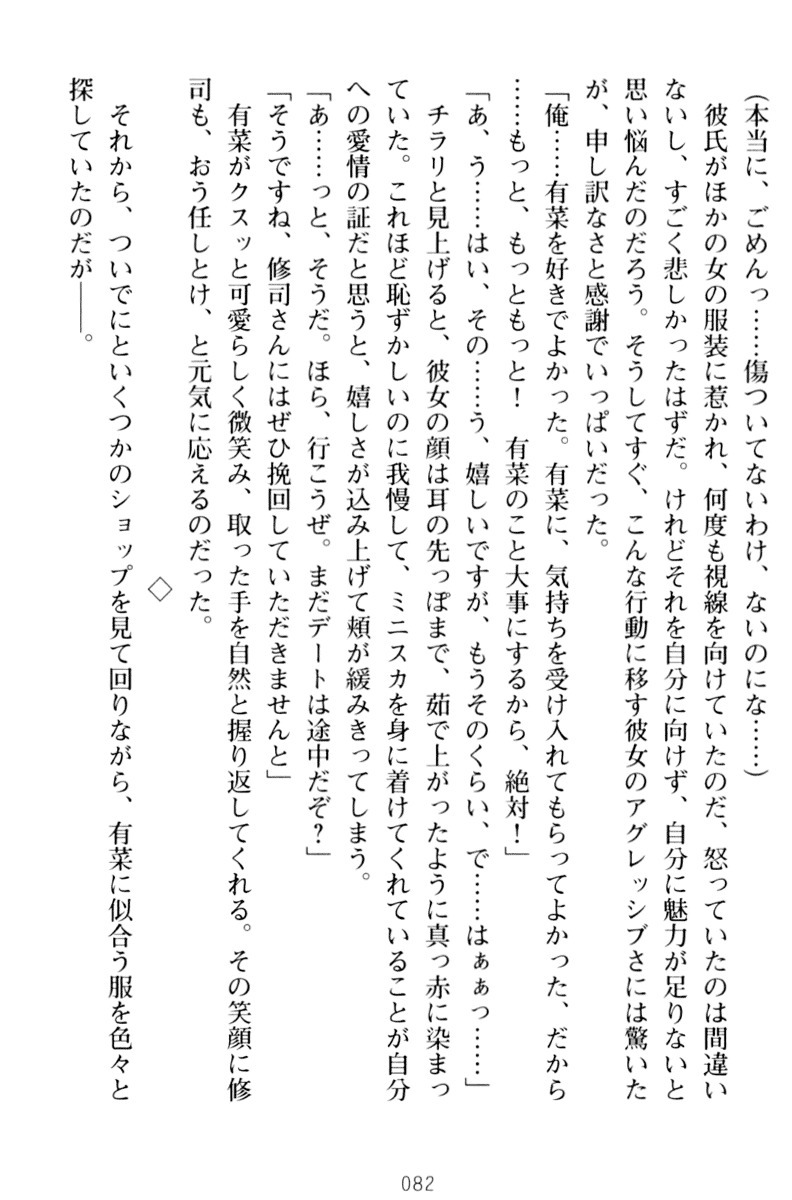 （本当に、ごめんっ……傷ついてないわけ、ないのにな……）
　彼氏がほかの女の服装に惹かれ、何度も視線を向けていたのだ、怒っていたのは間違い
ないし、すごく悲しかったはずだ。けれどそれを自分に向けず、自分に魅力が足りないと
思い悩んだのだろう。そうしてすぐ、こんな行動に移す彼女のアグレッシブさには驚いた
が、申し訳なさと感謝でいっぱいだった。
「俺……有菜を好きでよかった。有菜に、気持ちを受け入れてもらってよかった、だから
……もっと、もっともっと！　有菜のこと大事にするから、絶対！」
「あ、う……はい、その……う、嬉しいですが、もうそのくらい、で……はぁぁっ……」
　チラリと見上げると、彼女の顔は耳の先っぽまで、茹で上がったように真っ赤に染まっ
ていた。これほど恥ずかしいのに我慢して、ミニスカを身に着けてくれていることが自分
への愛情の証だと思うと、嬉しさが込み上げて頬が緩みきってしまう。
「あ……っと、そうだ。ほら、行こうぜ。まだデートは途中だぞ？」
「そうですね、修司さんにはぜひ挽回していただきませんと」
　有菜がクスッと可愛らしく微笑み、取った手を自然と握り返してくれる。その笑顔に修
司も、おう任しとけ、と元気に応えるのだった。
◇
　それから、ついでにといくつかのショップを見て回りながら、有菜に似合う服を色々と
探していたのだが――。
082